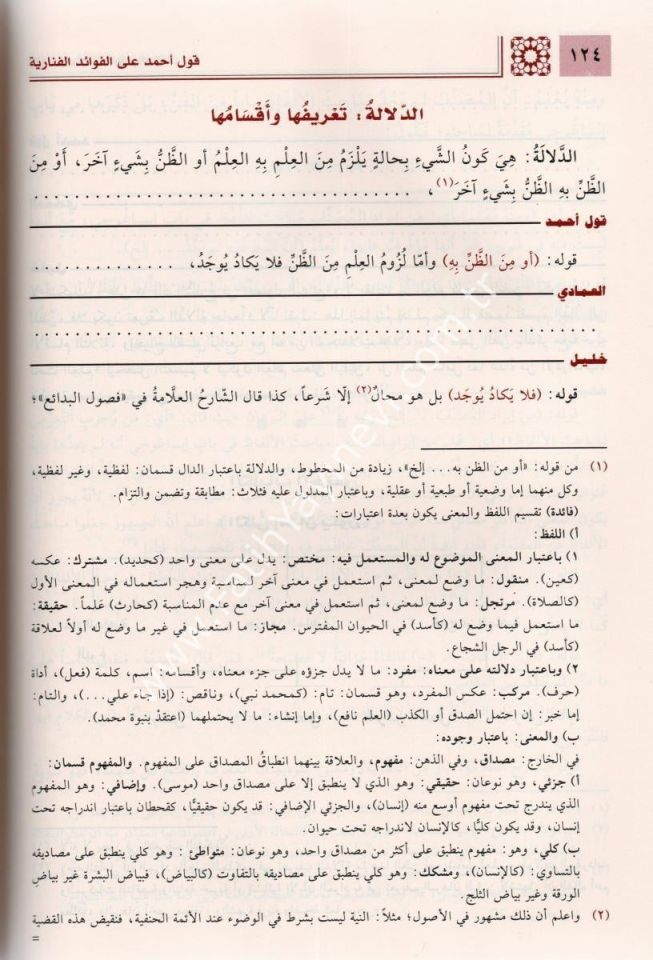 ١٢٤
قول أحمد على الفوائد الفنارية
الدّلالةُ: تَعْرِيفُها وأَقْسَامُها
الدَّلالَةُ: هِيَ كَونُ الشَّيءِ بِحالةٍ يَلْزَمُ مِنَ العِلْمِ بِهِ العِلْمُ أو الظَّنُّ بِشَيءٍ آخَرَ، أَوْ مِنَ
الظَّنِّ بِه الظَّنُّ بِشَيءٍ آخَرَ(١)، . . . . . . . . . . . . . . . . . . . . . . . . . . . . .
قول أحمد
قوله: (أو مِنَ الظَّنِّ بِهِ) وأمّا لُزُومُ العِلْمِ مِنَ الظَّنِّ فلا يَكادُ يُوجَدُ، . . . . . . . . . . . . . .
العمادي
. . . . . . . . . . . . . . . . . . . . . . . . . . . . . . . . . . . . . . . . . . . . . . . . . . . . . .
خليل
قوله: (فلا يَكادُ يُوجَد) بل هو محالٌ(٢) إلّا شَرعاً، كذا قال الشّارحُ العلّامةُ في «فصول البدائع»؛
(١) من قوله: «أو من الظن به... إلخ»، زيادة من المخطوط، والدلالة باعتبار الدال قسمان: لفظية، وغير لفظية،
وكل منهما إما وضعية أو طبعية أو عقلية، وباعتبار المدلول عليه فثلاث: مطابقة وتضمن والتزام.
(فائدة) تقسيم اللفظ والمعنى يكون بعدة اعتبارات:
أ) اللفظ:
١) باعتبار المعنى الموضوع له والمستعمل فيه: مختص: يدل على معنى واحد (كحديد). مشترك: عكسه
(كعين). منقول: ما وضع لمعنى، ثم استعمل في معنى آخر لمناسبة وهجر استعماله في المعنى الأول
(كالصلاة). مرتجل: ما وضع لمعنى، ثم استعمل في معنى آخر مع عدم المناسبة (كحارث) عَلماً. حقيقة:
ما استعمل فيما وضع له (كأسد) في الحيوان المفترس. مجاز: ما استعمل في غير ما وضع له أولاً لعلاقة
(كأسد) في الرجل الشجاع.
٢) وباعتبار دلالته على معناه: مفرد: ما لا يدل جزؤه على جزء معناه، وأقسامه: اسم، كلمة (فعل)، أداة
(حرف). مركب: عكس المفرد، وهو قسمان: تام: (كمحمد نبي)، وناقص: (إذا جاء علي...)، والتام:
إما خبر: إن احتمل الصدق أو الكذب (العلم نافع)، وإما إنشاء: ما لا يحتملهما (اعتقدْ بنبوة محمد).
ب) والمعنى: باعتبار وجوده:
في الخارج: مصداق، وفي الذهن: مفهوم، والعلاقة بينهما انطباقُ المصداق على المفهوم. والمفهوم قسمان:
أ) جزئي، وهو نوعان: حقيقي: وهو الذي لا ينطبق إلا على مصداق واحد (موسى). وإضافي: وهو المفهوم
الذي يندرج تحت مفهوم أوسع منه (إنسان)، والجزئي الإضافي: قد يكون حقيقيًّا، كقحطان باعتبار اندراجه تحت
إنسان، وقد يكون كليًّا، كالإنسان لاندراجه تحت حيوان.
ب) كلي، وهو: مفهوم ينطبق على أكثر من مصداق واحد، وهو نوعان: متواطئ: وهو كلي ينطبق على مصاديقه
بالتساوي: (كالإنسان)، ومشكك: وهو كلي ينطبق على مصاديقه بالتفاوت (كالبياض)، فبياض البشرة غير بياض
الورقة وغير بياض الثلج.
(٢) واعلم أن ذلك مشهور في الأصول؛ مثلاً: النية ليست بشرط في الوضوء عند الأئمة الحنفية، ونقيض هذه القضية
=
www.FatihYayinevi.com.tr